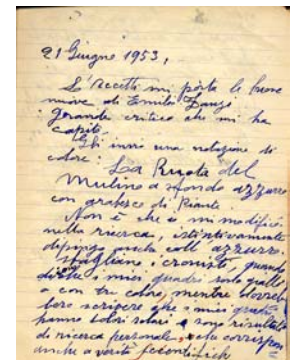 21 Giugno 1953,
mi porta le buone
nuove di Emilio Zanzi
grande critico che mi ha
capito.
Gli invio una notazione di
colore: La Ruota del
Mulino a sfondo azzurro
con grafesco di Piante.
Non è che io mi modifico
nella ricerca, istintivamente
dipingo anche coll'azzurro.
Sbagliano i cronisti, quando
dicono i miei quadri solo gialli
o con tre colori, mentre dovreb
bero scrivere che i miei quadri
hanno colori solari, e sono risultato
di ricerca personale, e che corrispon
anche a verità